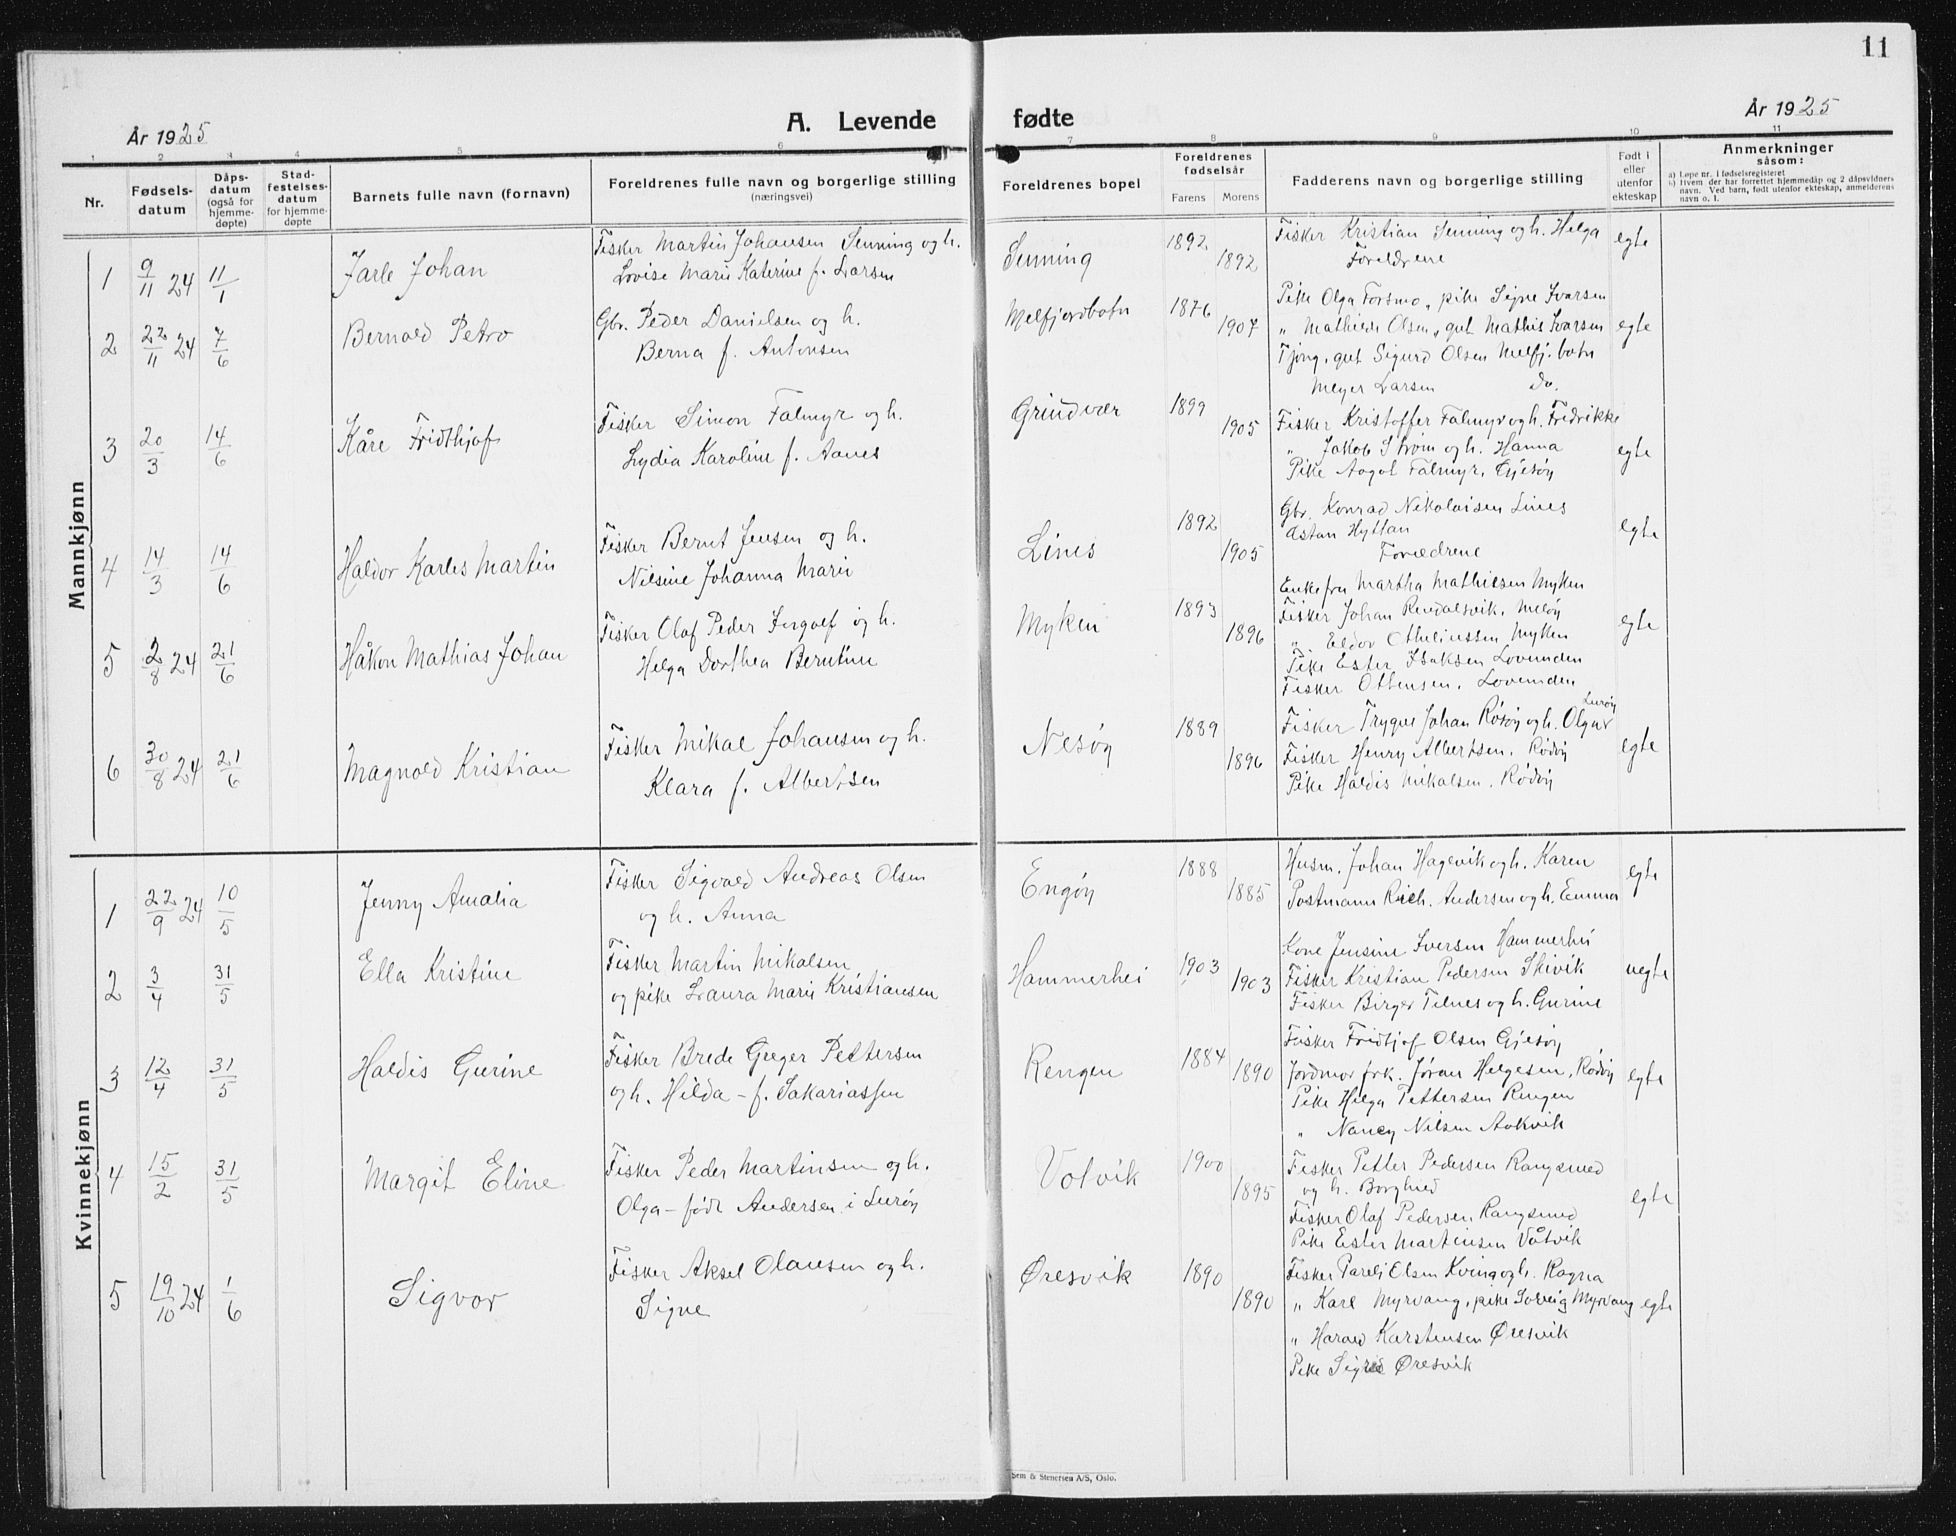 11
År 1925
A. Levende fødte
År 1925
1 2 3 4 5 6 7 8 9 10 11
Nr.
Fødsels-
datum
Dåps-
datum
(også for
hjemme-
døpte)
Stad-
festelses-
datum
for hjemme-
døpte
Barnets fulle navn (fornavn)
Foreldrenes fulle navn og borgerlige stilling
(næringsvei)
Foreldrenes bopel
Foreldrenes
fødselsår
Farens Morens
Fadderens navn og borgerlige stilling
Født i
eller
utenfor
ekteskap
Anmerkninger
såsom:
a) Løpe nr. i fødselsregisteret
b) Hvem der har forrettet hjemmedåp og 2 dåpsvidners
navn. Ved barn, født utenfor ekteskap, anmelderens
navn o. l.
Mannkjønn
1 9/11 24 11/1 Jarle Johan
Fisker Martin Johansen Senning og h.
Lovise Marie Katerine f. Larsen
Senning 1892 1892
Fisker Kristian Senning og h. Helga
Foreldrene
egte
2 22/11 24 7/6 Bernold Petro
Gbr. Peder Danielsen og h.
Berna f. Antonsen
Melfjordbotn 1876 1907
Pike Olga Forsmo, pike Signe Ivarsen
" Mathilde Olsen, gut Mathis Ivarsen
Tjong, gut Sigurd Olsen Melfj.botn
Meyer Larsen Do.
egte
3 20/3 14/6 Kåre Fridthjof
Fisker Simon Falmyr og h.
Lydia Karoline f. Aanes
Grindvær 1899 1905
Fisker Kristoffer Falmyr og h. Fredrikke
" Jakob Strøm og h. Hanna
Pike Aagot Falmyr, Gjesøy
egte
4 14/3 14/6 Haldor Karles Martin
Fisker Bernt Jensen og h.
Nilsine Johanna Marie
Lines 1892 1905
Gbr. Konrad Nikolaisen Lines
Astan Hyttan
Foreldrene
egte
5 2/8 24 21/6 Håkon Mathias Johan
Fisker Olaf Peder Ingolf og h.
Helga Dorthea Berntine
Myken 1893 1896
Enkefru Martha Mathiesen Myken
Fisker Johan Rendalsvik, Meløy
" Eldor Otheliussen Myken
Pike Ester Isaksen Lovunden
Fisker Ottensen, Lovunden
egte
6 30/8 24 21/6 Magnold Kristian
Fisker Mikal Johansen og h.
Klara f. Albertsen
Nesøy 1889 1896
Lurøy
Fisker Trygve Johan Røsøy og h. Olga
Fisker Henry Albertsen, Rødøy
Pike Haldis Mikalsen, Rødøy
egte
Kvinnekjønn
1 22/9 24 10/5 Jenny Amalia
Fisker Sigvald Andreas Olsen
og h. Anna
Engøy 1888 1885
Husm. Johan Hagevik og h. Karen
Postmann Rich. Andersen og h. Emma
egte
2 3/4 31/5 Ella Kristine
Fisker Martin Mikalsen
og pike Laura Marie Kristiansen
Hammerhei 1903 1903
Kone Jensine Iversen Hammerhei
Fisker Kristian Pedersen Skivik
Fisker Birger Tilnes og h. Gurine
uegte
3 12/4 31/5 Haldis Gurine
Fisker Brede Greger Pettersen
og h. Hilda - f. Sakariassen
Rengen 1884 1890
Fisker Fridtjof Olsen Gjesøy
Jordmor frk. Jøran Helgesen, Rødøy
Pike Helga Pettersen Rengen
" Nancy Nilsen Aakvik
egte
4 15/2 31/5 Margit Eline
Fisker Peder Martinsen og h.
Olga - født Andersen i Lurøy
Votvik 1900 1895
Fisker Petter Pedersen Rangsmed
og h. Borghild
Fisker Olaf Pedersen Rangsmed
Pike Ester Martinsen Våtvik
egte
5 19/10 24 1/6 Sigvor
Fisker Aksel Olausen og h.
Signe
Øresvik 1890 1890
Fisker Pareli Olsen Kving og h. Ragna
" Karl Myrvang, pike Solveig Myrvang
" Harald Karstensen Øresvik
Pike Sigrid Øresvik
egte
Sem & Stenersen A/S, Oslo.